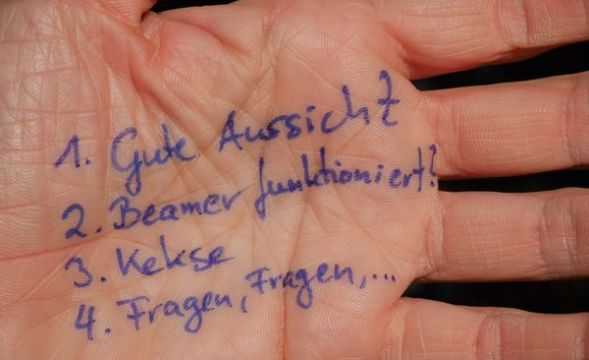 1. Gute Aussicht
2. Beamer funktioniert?
3. Kekse
4. Fragen, Fragen,...